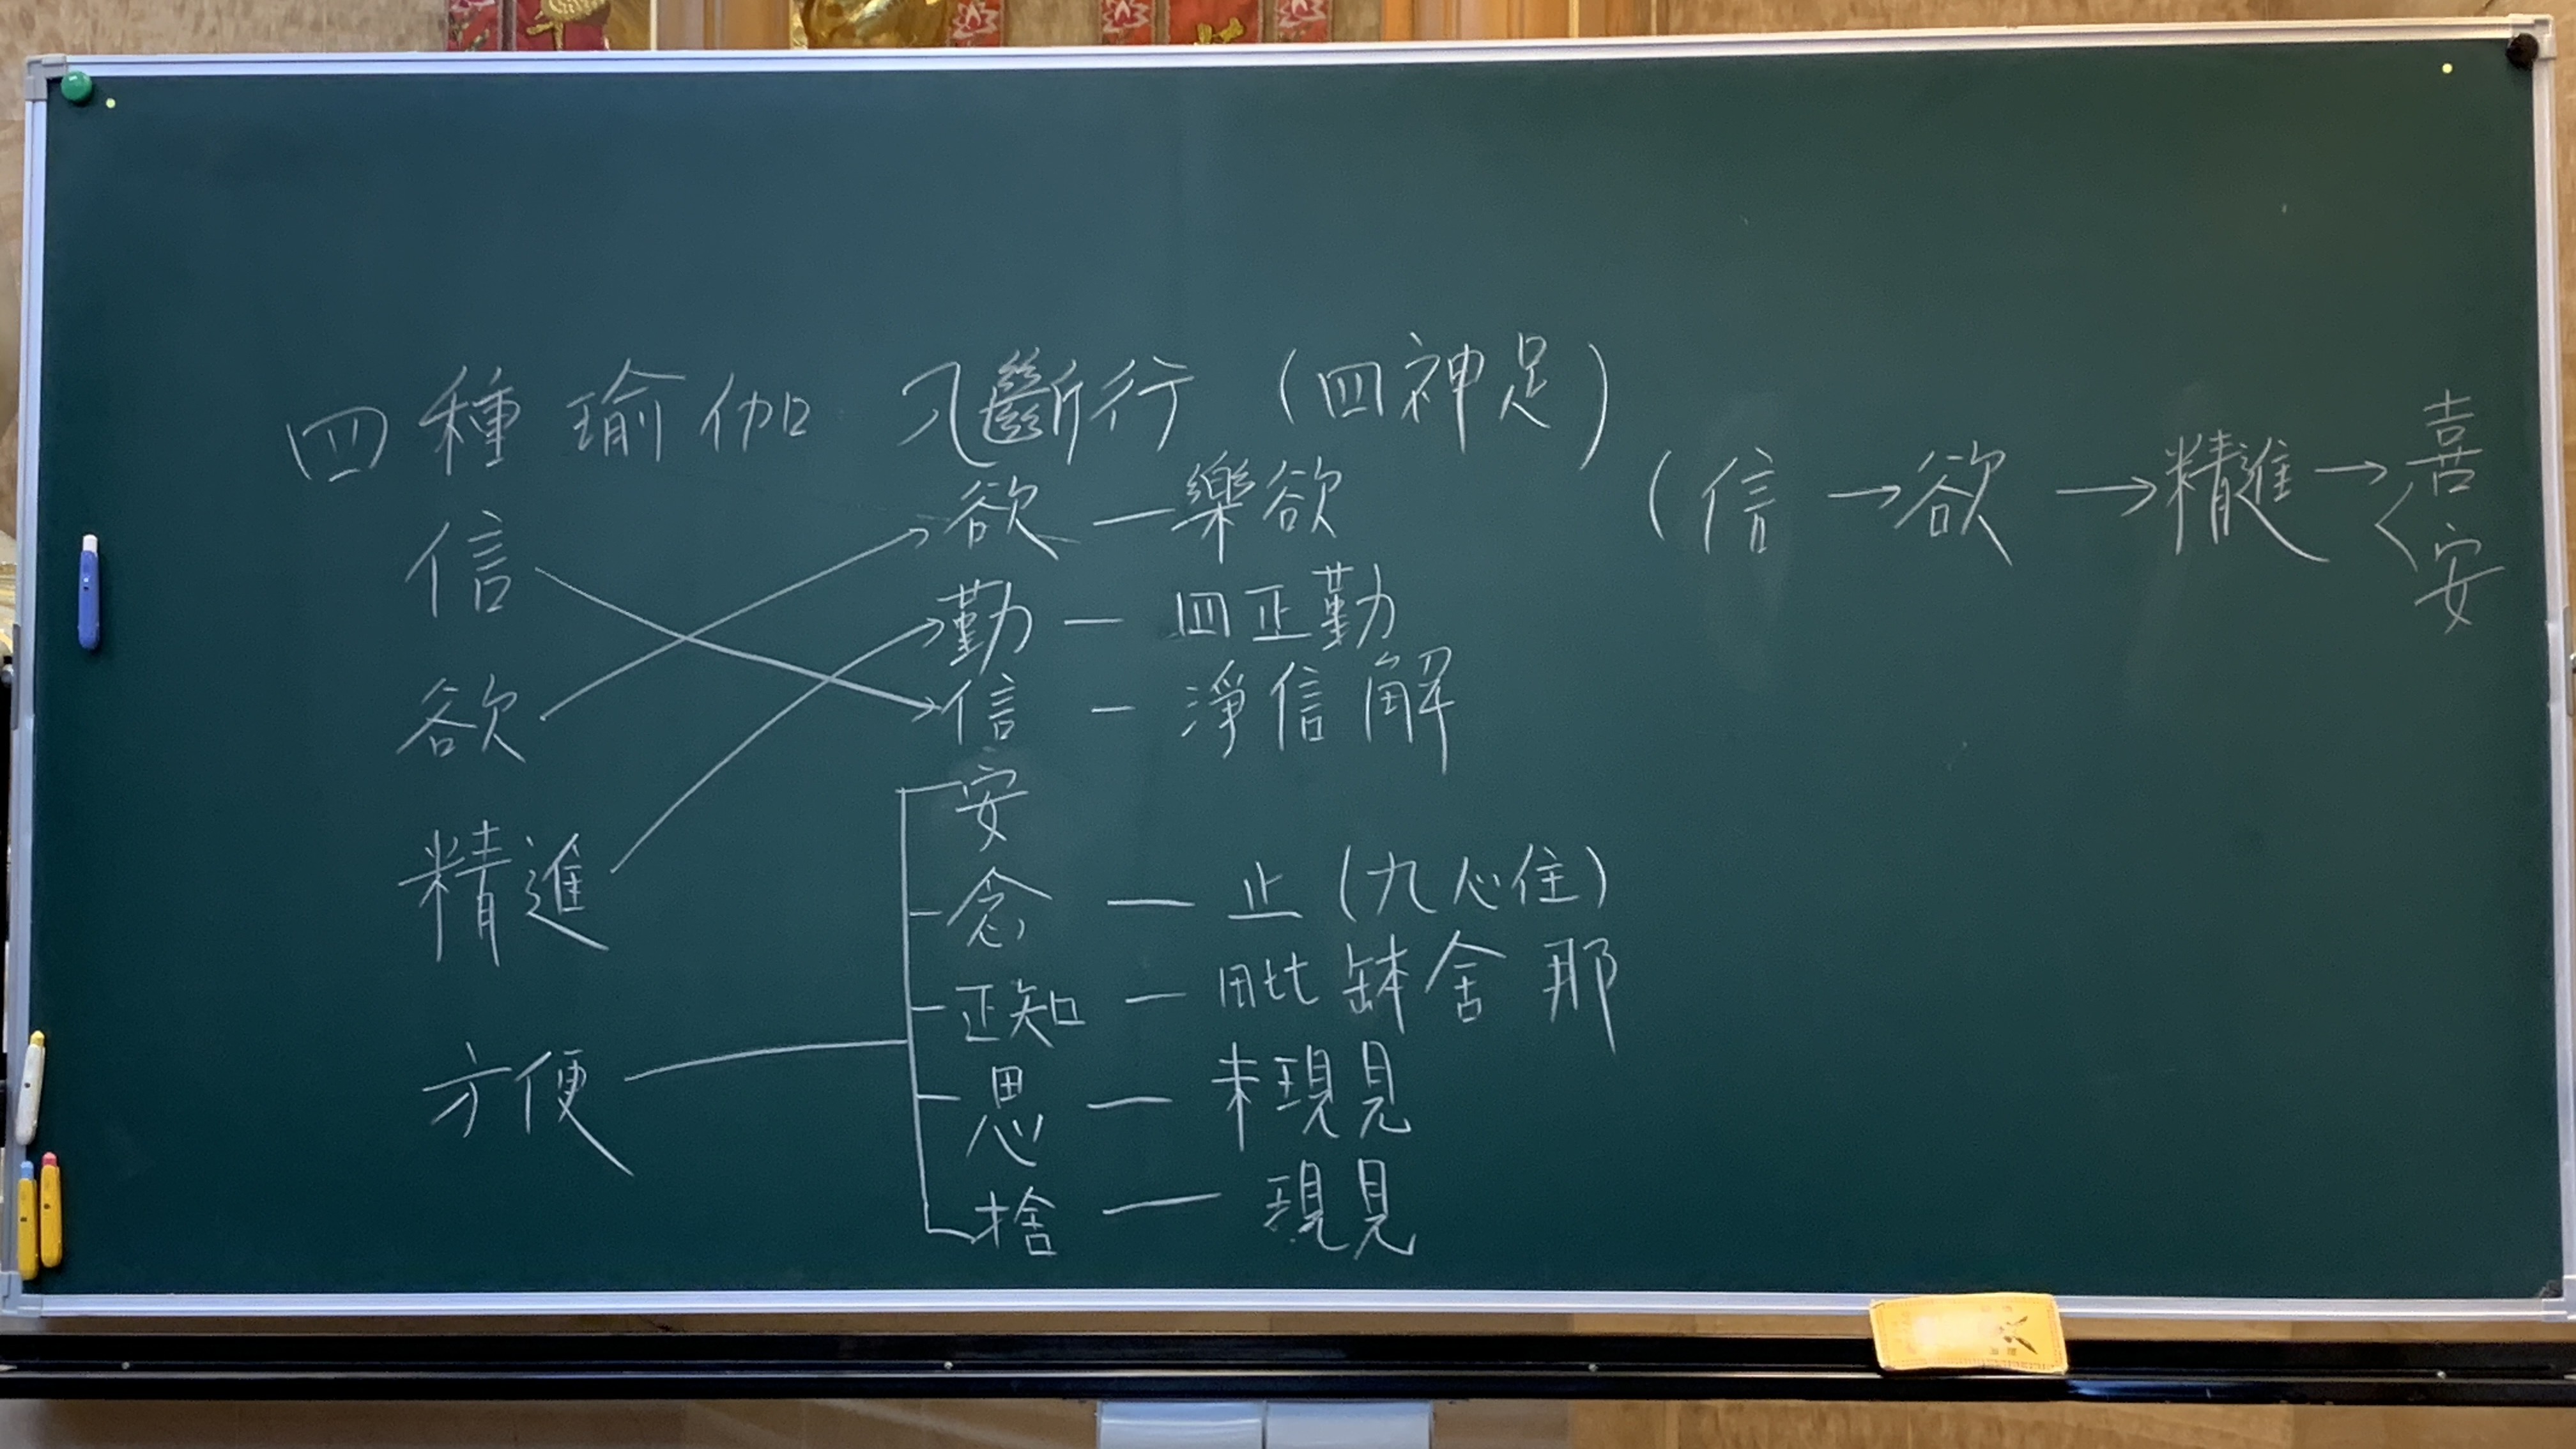 四種瑜伽 八斷行 (四神足)
(信 → 欲 → 精進 → 喜
安
信
欲
精進
方便
欲 — 樂欲
勤 — 四正勤
信 — 淨信解
安
念 — 止 (九心住)
正知 — 毗缽舍那
思 — 未現見
捨 — 現見